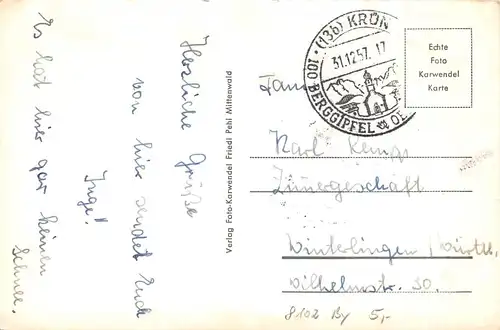 Herzliche Grüße
von hier sendet Euch
Inge!
Es hat hier gar keinen
Schnee.
Verlag Foto-Karwendel Friedl Pehl Mittenwald
(13b) KRÜN
31.12.57. 17
100 BERGGIPFEL
Echte
Foto
Karwendel
Karte
Fam
Karl Kempf
Winterlingen / Württ.
Wilhelmstr. 30.
8102 By 5,-